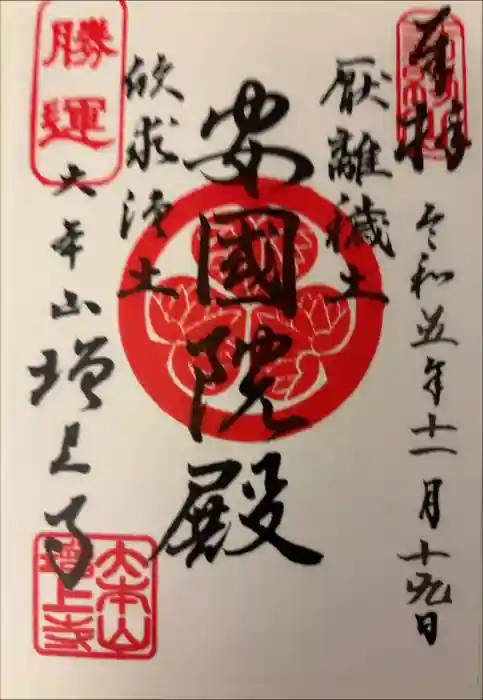 奉拝
令和五年十一月十九日
厭離穢土
安國院殿
欣求浄土
勝運
大本山増上寺
大本山
増上寺